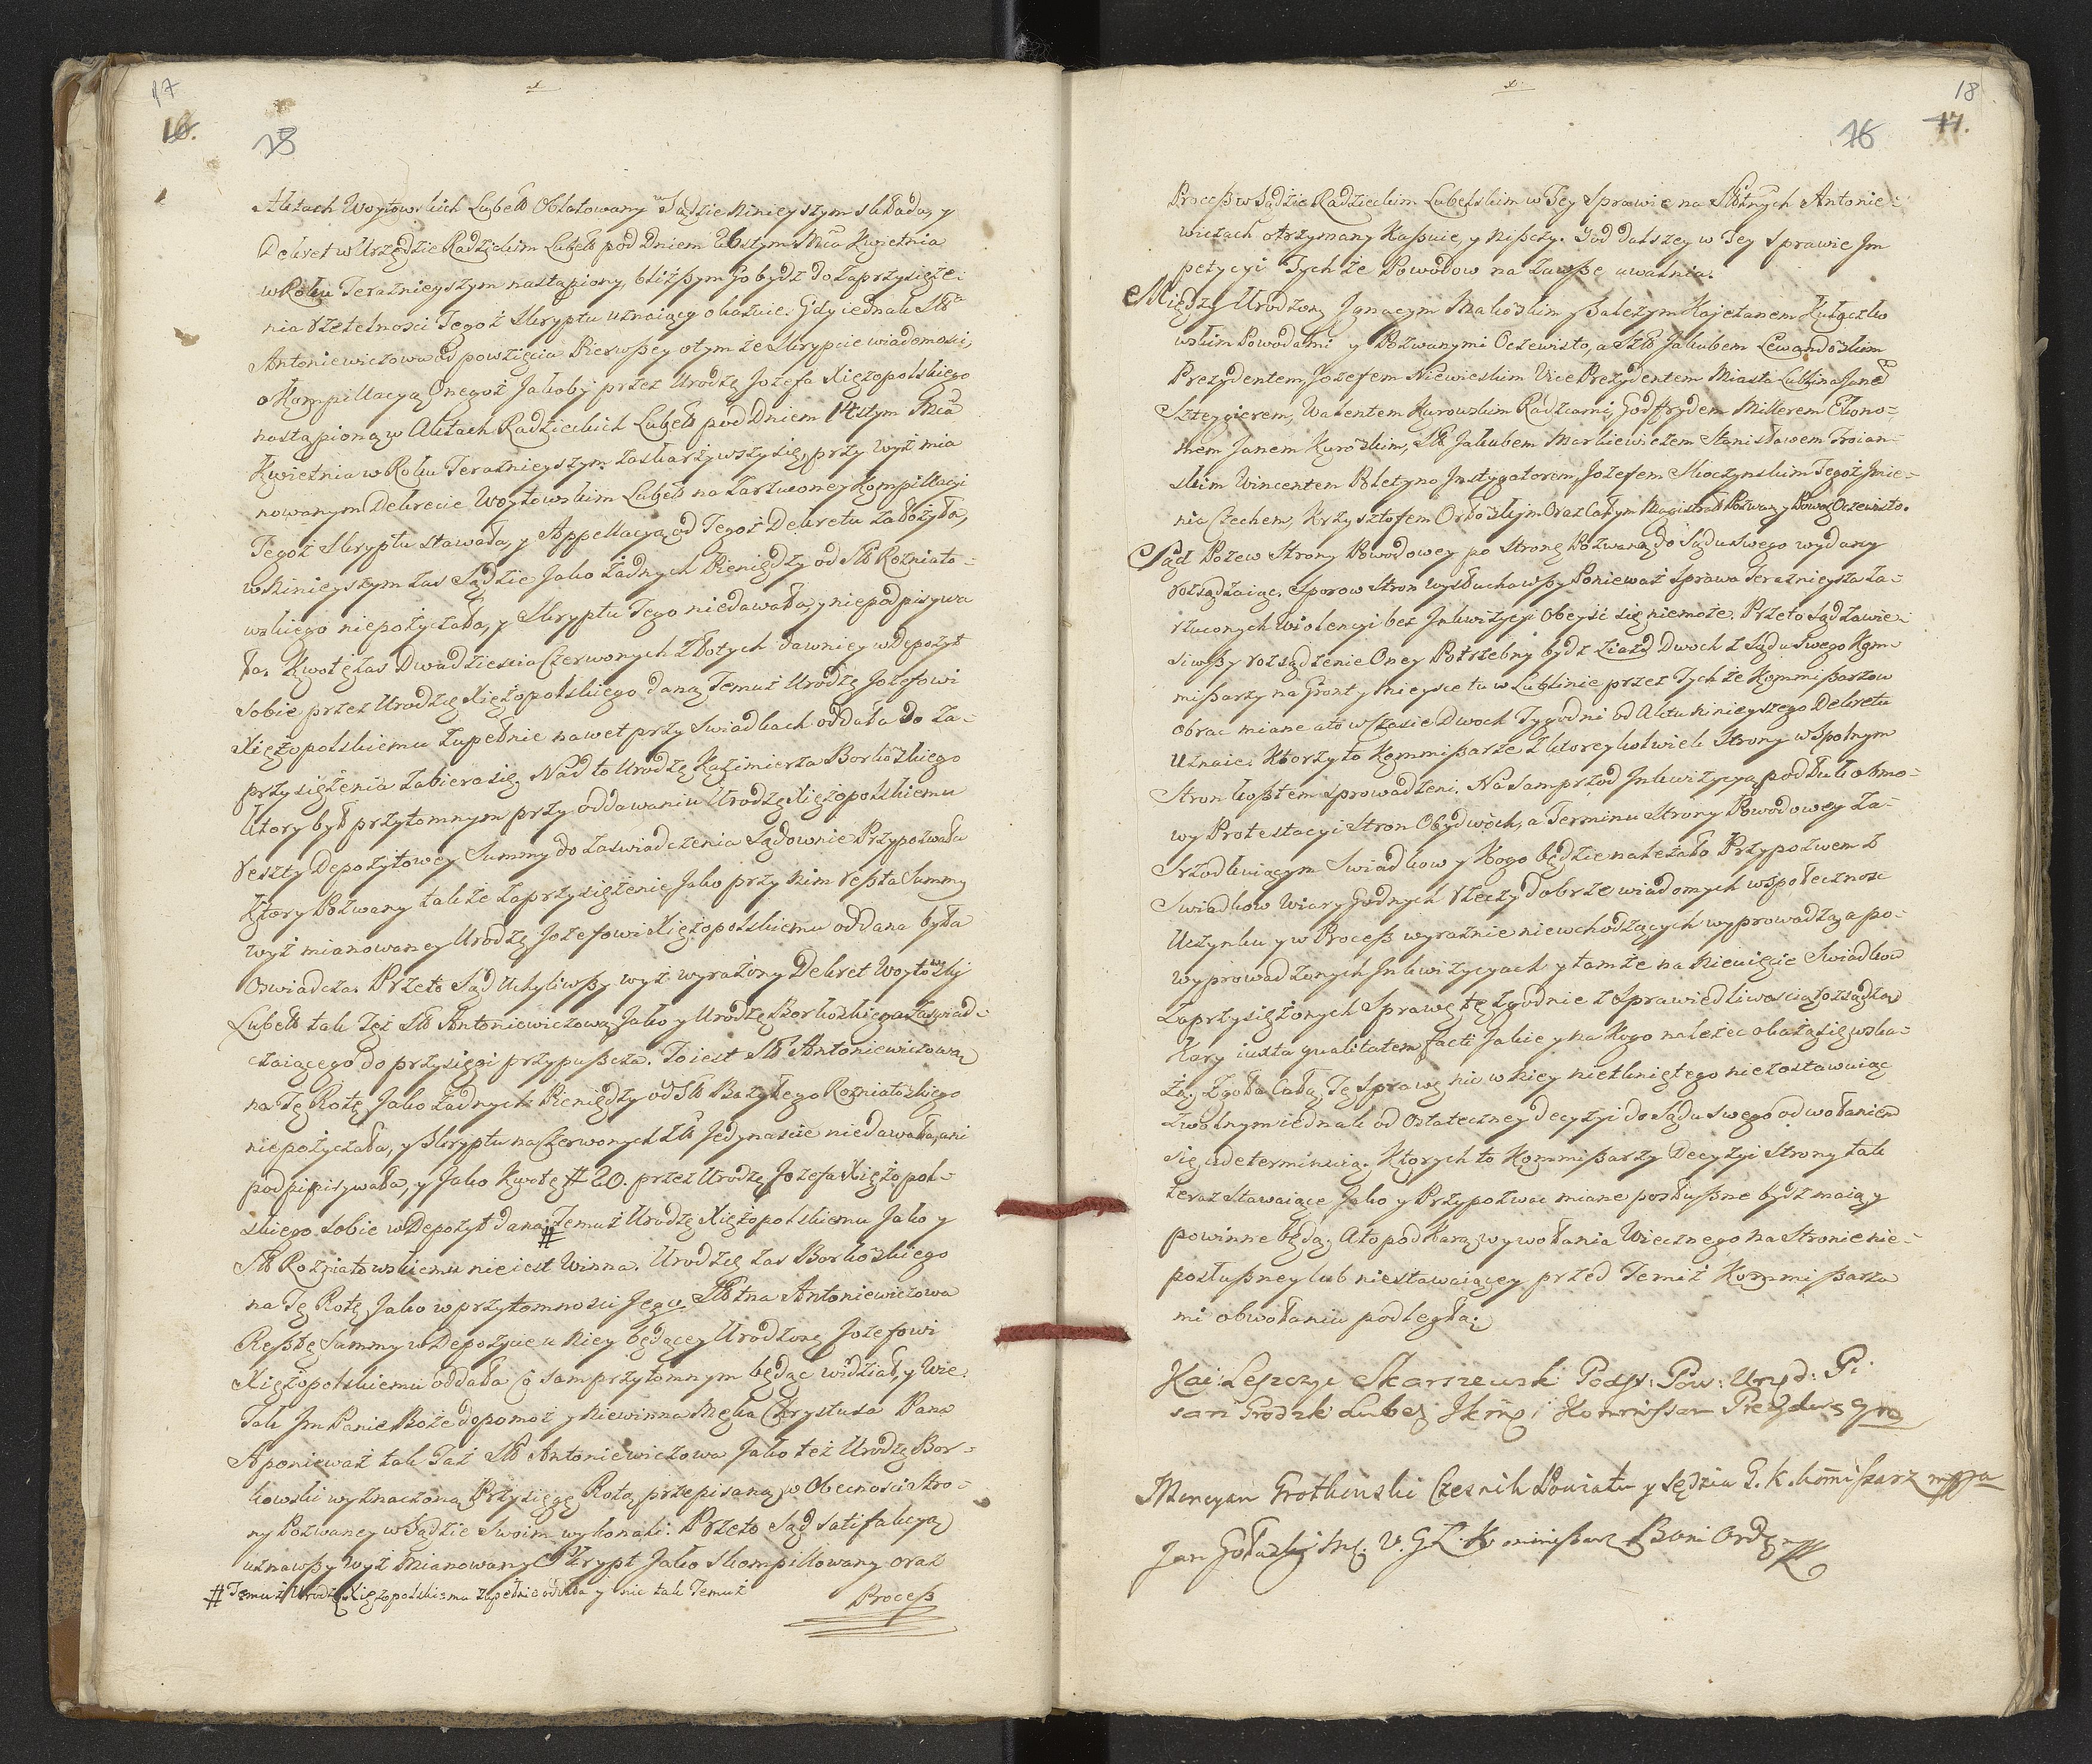 17
16.
18
Aktach Woytowskich Lubelb Oblatowany Sądzie Ninieyszym składa, y
Dekret w Urzędzie Radzieckim Lubelb pod Dniem 26stym Mca Kwietnia
w Roku Teraznieyszym nastąpiony, bliższym Go bydz do zaprzysięże-
nia Rzetelnosci Tegoż Skryptu uznaiący okazuie. Gdy iednak Sła
Antoniewiczowa od powzięcia Pierwszey o tym że Skrypcie wiadomosci,
o Kompillacyą Onegoż Jakoby przez Urodzę Jozefa Xiężopolskiego
nastąpioną w Aktach Radzieckich Lubelb pod Dniem 14stym Mca
Kwietnia w Roku Teraznieyszym zaskarżywszy się, przy wyż mia
nowanym Dekrecie Woytowskim Lubelb na Zarzuconey Kompillacyi
Tegoż Skryptu stawała, y Appellacyą od Tegoż Dekretu założyła,
w Ninieyszym zas Sądzie Jako żadnych Pieniędzy od Sł Rozniato-
wskiego niepożyczała, y Skryptu Tego niedawała, y niepodpisywa
ła. Kwotę zas Dwadziescia Czerwonych Złotych dawniey w Depozyt
Sobie przez Urodzę Xiężopolskiego daną, Temuż Urodzę Jozefowi
Xiężopolskiemu Zupełnie nawet przy Swiadkach oddała do Za-
przysiężenia zabiera się. Nad to Urodzę Kazimierza Borkowskiego
ktory był przytomnym przy oddawaniu Urodzę Xiężopolskiemu
Reszty Depozytowey Summy do zaswiadczenia Sądownie Przypozwała
Ktory Pozwany także zaprzysiężenie Jako przy Nim reszta Summy
wyż mianowaney Urodzę Jozefowi Xiężopolskiemu oddana była
Oswiadcza. Przeto Sąd Uchyliwszy wyż wyrażony Dekret Woytowski
Lubelb tak Też Sł Antoniewiczową Jako y Urodzę Borkowskiego zaswiad-
czaiącego do przysięgi przypuszcza. To iest Sł Antoniewiczową
na Tę Rotę Jako żadnych Pieniędzy od Sł Bazylego Rozniatowskiego
niepożyczała, y Skryptu na Czerwonych Zł Jedynascie niedawała, ani
podpisywała, y Jako Kwotę # 20. przez Urodzę Jozefa Xiężopol-
skiego Sobie w Depozyt daną # Temuż Urodzę Xiężopolskiemu Jako y
Sł Rozniatowskiemu nie iest Winna. Urodzę zas Borkowskiego
na Tę Rotę Jako w przytomnosci Jego Słtna Antoniewiczowa
Resztę Summy w Depozycie u Niey będącey Urodzonę Jozefowi
Xiężopolskiemu oddała Co sam przytomnym będąc widział, y Wie.
Tak Jm Panie Boże dopomoż y Niewinna Męka Chrystusa Pana
A ponieważ tak Taż Sł Antoniewiczowa Jako też Urodzę Bor-
kowski wyznaczoną Przysięgę Rotą przepisaną w Obecnosci Stro-
ny Pozwaney w Sądzie Swoim wykonali. Przeto Sąd satisfakcyą
uznawszy wyż mianowany Skrypt Jako Skompillowany oraz
# Temuż Urodzę Xiężopolskiemu zupełnie oddała y nic tak Temuż
Process
18
17.
16
Process w Sądzie Radzieckim Lubelskim w Tey Sprawie na Słtnych Antonie-
wiczach otrzymany Kassuie, y Niszczy. Y od dalszey w Tey Sprawie Jm
petycyi Tych że Powodow na Zawsze uwalnia.
Między Urodzonę Jgnacym Makoskim y Salezym Kajetanem Kułaczko
wskim Powodami y Pozwanymi Oczewisto, a Szł Jakubem Lewandoskim
Prezydentem, Jozefem Niewieskim Vice Prezydentem Miasta Lublina Janem
Szteygierem, Walentem Kurowskim Radzcami, Godfrydem Millerem Ekono-
mem Janem Kuroskim, Sł Jakubem Markiewiczem Stanisławem Troian-
skim Wincentem Poletyno Jnstygatorem, Jozefem Skoczynskim Tegoż Jmie-
nia Czechem, Krzysztofem Orłoskim Oraz Całym Magistrat Pozwan y Powod Oczewisto.
Sąd Pozew Strony Powodowey po Stronę Pozwaną do Sądu Swego wydany
rozsądzaiąc. Sporow Stron wysłuchawszy Ponieważ Sprawa Teraznieysza Za-
rzuconych Wiolencyi bez Jnkwizycyi Obeyść się niemoże. Przeto Sąd zawie-
siwszy rozsądzenie Oney Potrzebny bydz Ziazd Dwoch z Sądu Swego Kom-
missarzy na Gront y Mieysce tu w Lublinie przez Tych że Kommissarzow
obrac miane a to w Czasie Dwoch Tygodni od Aktu Ninieyszego Dekretu
Uznaie. Ktorzy to Kommissarze z ktoreykolwiek Strony wspolnym
Stron kosztem sprowadzeni. Nasamprzod Jnkwizycyą podług obmo-
wy Protestacyi Stron Obydwoch, a Terminu Strony Powodowey Za-
srzodkuiącym Swiadkow y Kogo będzie należało Przypozwem z
Swiadkow Wiary Godnych Rzeczy dobrze wiadomych wspołecznosc
Uczynku y w Process wyraznie niewchodzących wyprowadzą, a po-
wyprowadzonych Jnkwizycyach y tamże na Mieyscu Swiadkow
Zaprzysiężonych Sprawę tę zgodnie z Sprawiedliwoscią rozsądzą
Kary iuxta qualitatem facti Jakie y na Kogo należec okażą się wska-
żą, Zgoła Całą Tę Sprawę nic w Niey nietkniętego niezostawuiąc
Zwolnym iednak od Ostateczney Decyzyi do Sądu Swego odwołaniem
się zdeterminuią. Ktorych to Kommissarzy Decyzyi Strony tak
teraz Stawaiące Jako y Przypozwac miane posłuszne bydz maią y
powinne będą. A to pod Karą wywołania Wiecznego na Stronie nie-
posłuszney lub niestawaiącey przed Temiż Kommissarza
mi obwołaniu podległą.
Kai: Leszczyc Skarszewski Podsę: Pow: Urzęd: Pi
sarz Grodzki Lubel: Kommissarz Prezyduią:
Marcyan Grothowski Czesnik Powiatu y Sędzia G. K. Kommissarz mppa
Jan Boni Ord